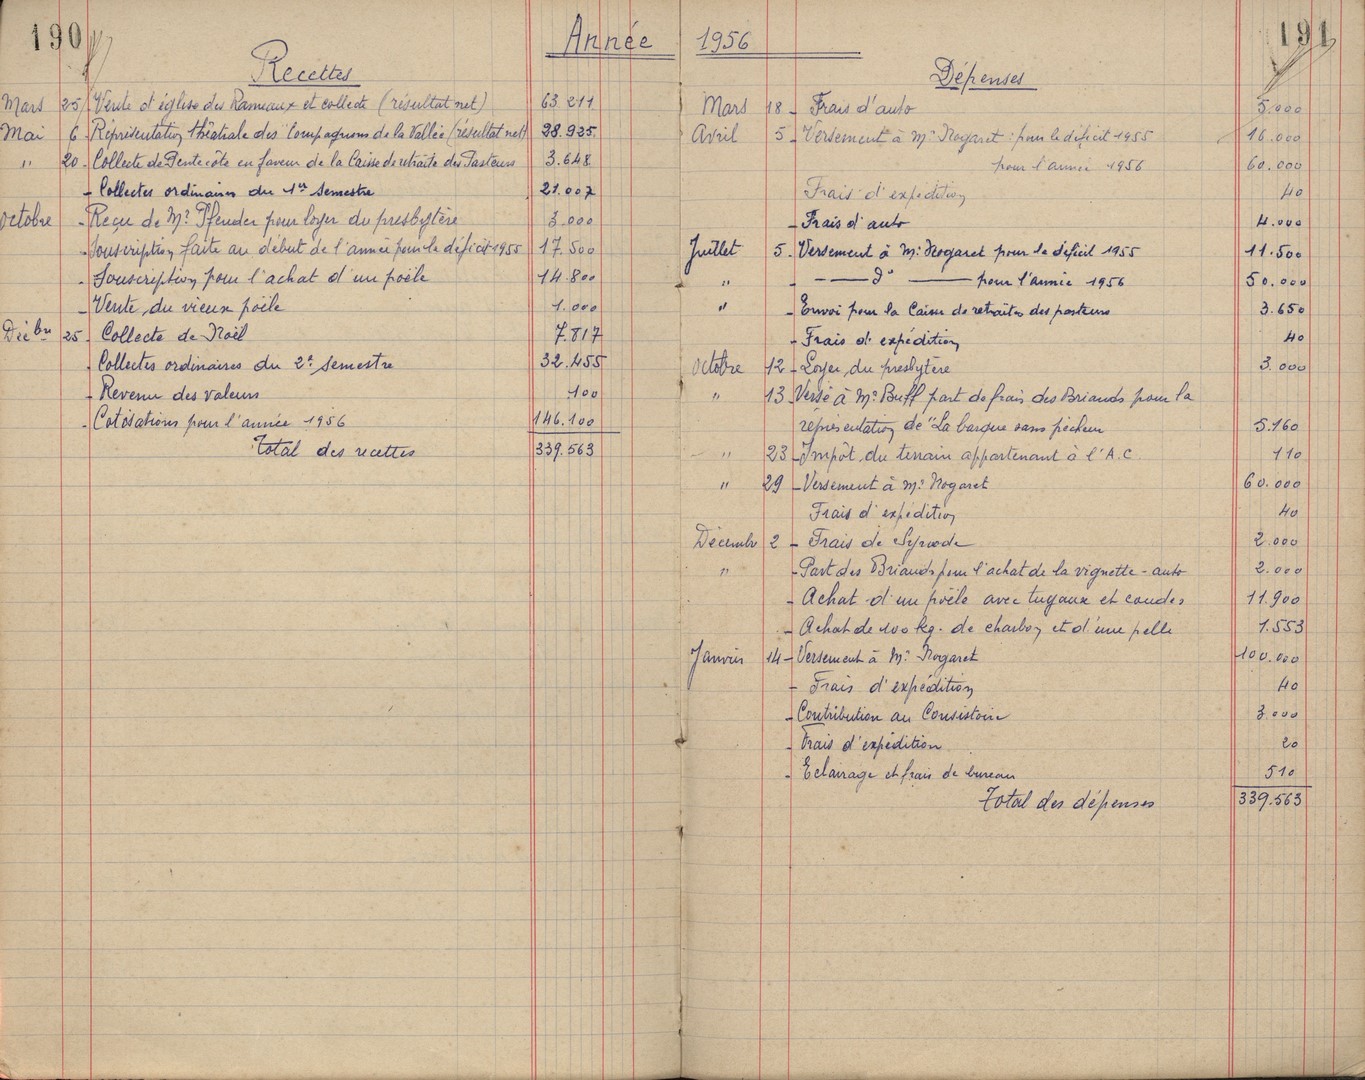 190
Année
Recettes
Mars 25 Vente d'église des Rameaux et collecte (résultat net) 63.211
Mai 6 - Répresentation théatrale des "Compagnons de la Vallée (résultat net) 28.925
" 20 - Collecte de Pentecôte en faveur de la Caisse de retraite des Pasteurs 3.648
- Collectes ordinaires du 1er semestre 21.007
Octobre - Reçu de Mr Pfender pour loyer du presbytère 3.000
- Souscription faite au début de l'année pour le déficit 1955 17.500
- Souscription pour l'achat d'un poële 14.800
- Vente du vieux poële 1.000
Décbre 25 - Collecte de Noël 7.817
- Collectes ordinaires du 2e semestre 32.455
- Revenu des valeurs 100
- Cotisations pour l'année 1956 146.100
Total des recettes 339.563
1956
191
Dépenses
Mars 18 - Frais d'auto 5.000
Avril 5 - Versement à Mr Nogaret : pour le déficit 1955 16.000
pour l'année 1956 60.000
Frais d'expédition 40
- Frais d'auto 4.000
Juillet 5 - Versement à Mr Nogaret pour le déficit 1955 11.500
" - — d° — pour l'année 1956 50.000
" - Envoi pour la Caisse de retraites des pasteurs 3.650
- Frais d'expédition 40
Octobre 12 - Loyer du presbytère 3.000
" 13 - Versé à Mr Buff part de frais des Briands pour la
réprésentation de "La barque sans pêcheur 5.160
" 23 - Impôt du terrain appartenant à l'A.C. 110
" 29 - Versement à Mr Nogaret 60.000
Frais d'expédition 40
Décembre 2 - Frais de Synode 2.000
" - Part des Briands pour l'achat de la vignette-auto 2.000
- Achat d'un poële avec tuyaux et coudes 11.900
- Achat de 100 kg. de charbon et d'une pelle 1.553
Janvier 14 - Versement à Mr Nogaret 100.000
- Frais d'expédition 40
- Contribution au Consistoire 3.000
- Frais d'expédition 20
- Eclairage et frais de bureau 510
Total des dépenses 339.563